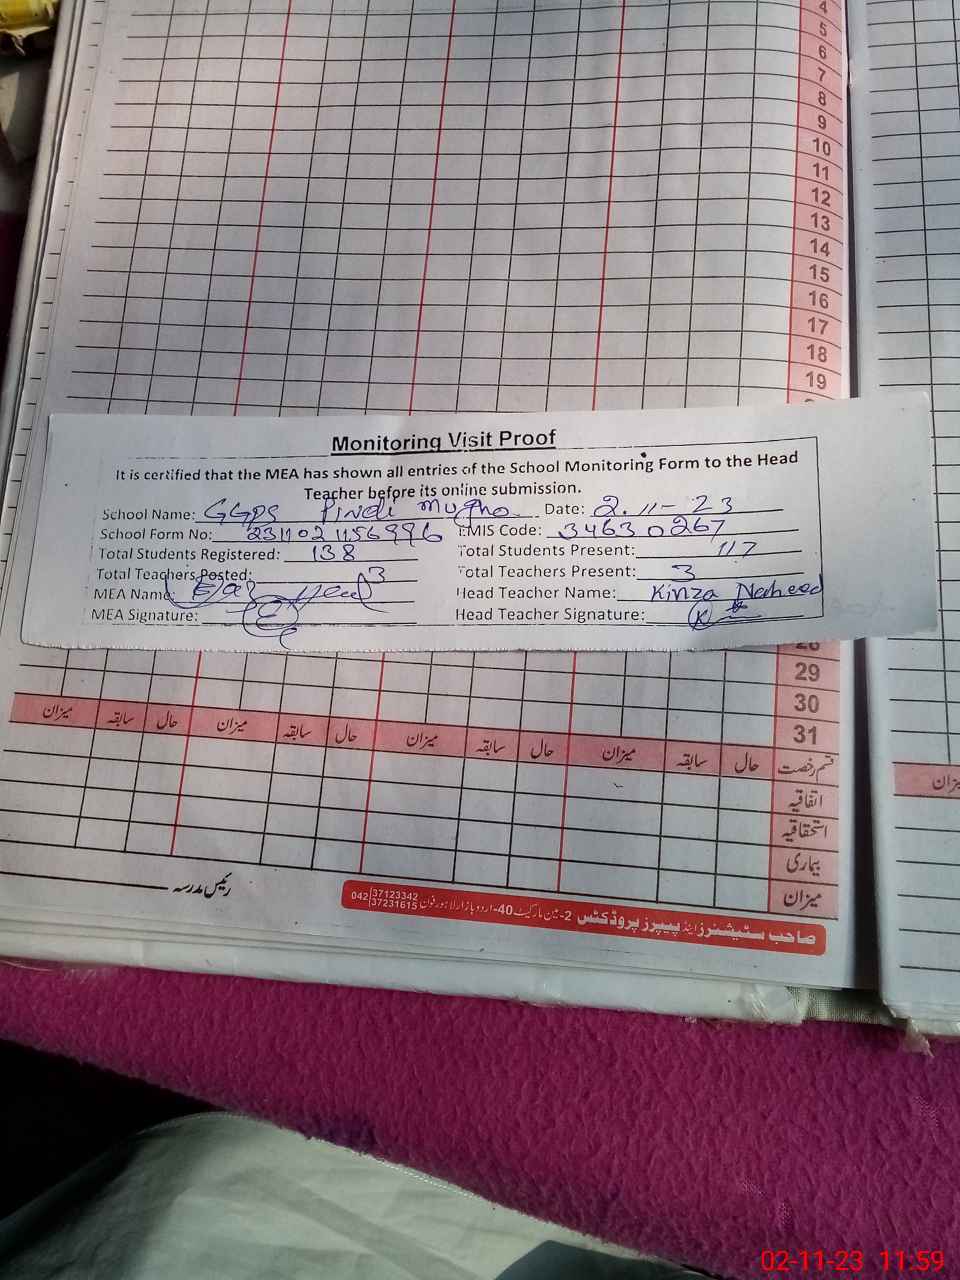 4
5
6
7
8
9
10
11
12
13
14
15
16
17
18
19
Monitoring Visit Proof
It is certified that the MEA has shown all entries of the School Monitoring Form to the Head
Teacher before its online submission.
School Name: GGPS Pindi Mugha Date: 2.11-23
School Form No: 231102115699 6 EMIS Code: 34630267
Total Students Registered: 138 Total Students Present: 117
Total Teachers Posted: 3 Total Teachers Present: 3
MEA Name: Head Teacher Name: Kinza Naheed
MEA Signature: Head Teacher Signature:
28
29
30
31
قسم رخصت حال سابقہ میزان حال سابقہ میزان حال سابقہ میزان حال سابقہ میزان
اتفاقیہ
استحقاقیہ
بیماری
میزان
رئیس مدرسہ
صاحب سٹیشنرز اینڈ پیپرز پروڈکٹس 2-مین مارکیٹ 40-اردو بازار لاہور فون 042 37123342 37231615
میزان
02-11-23 11:59